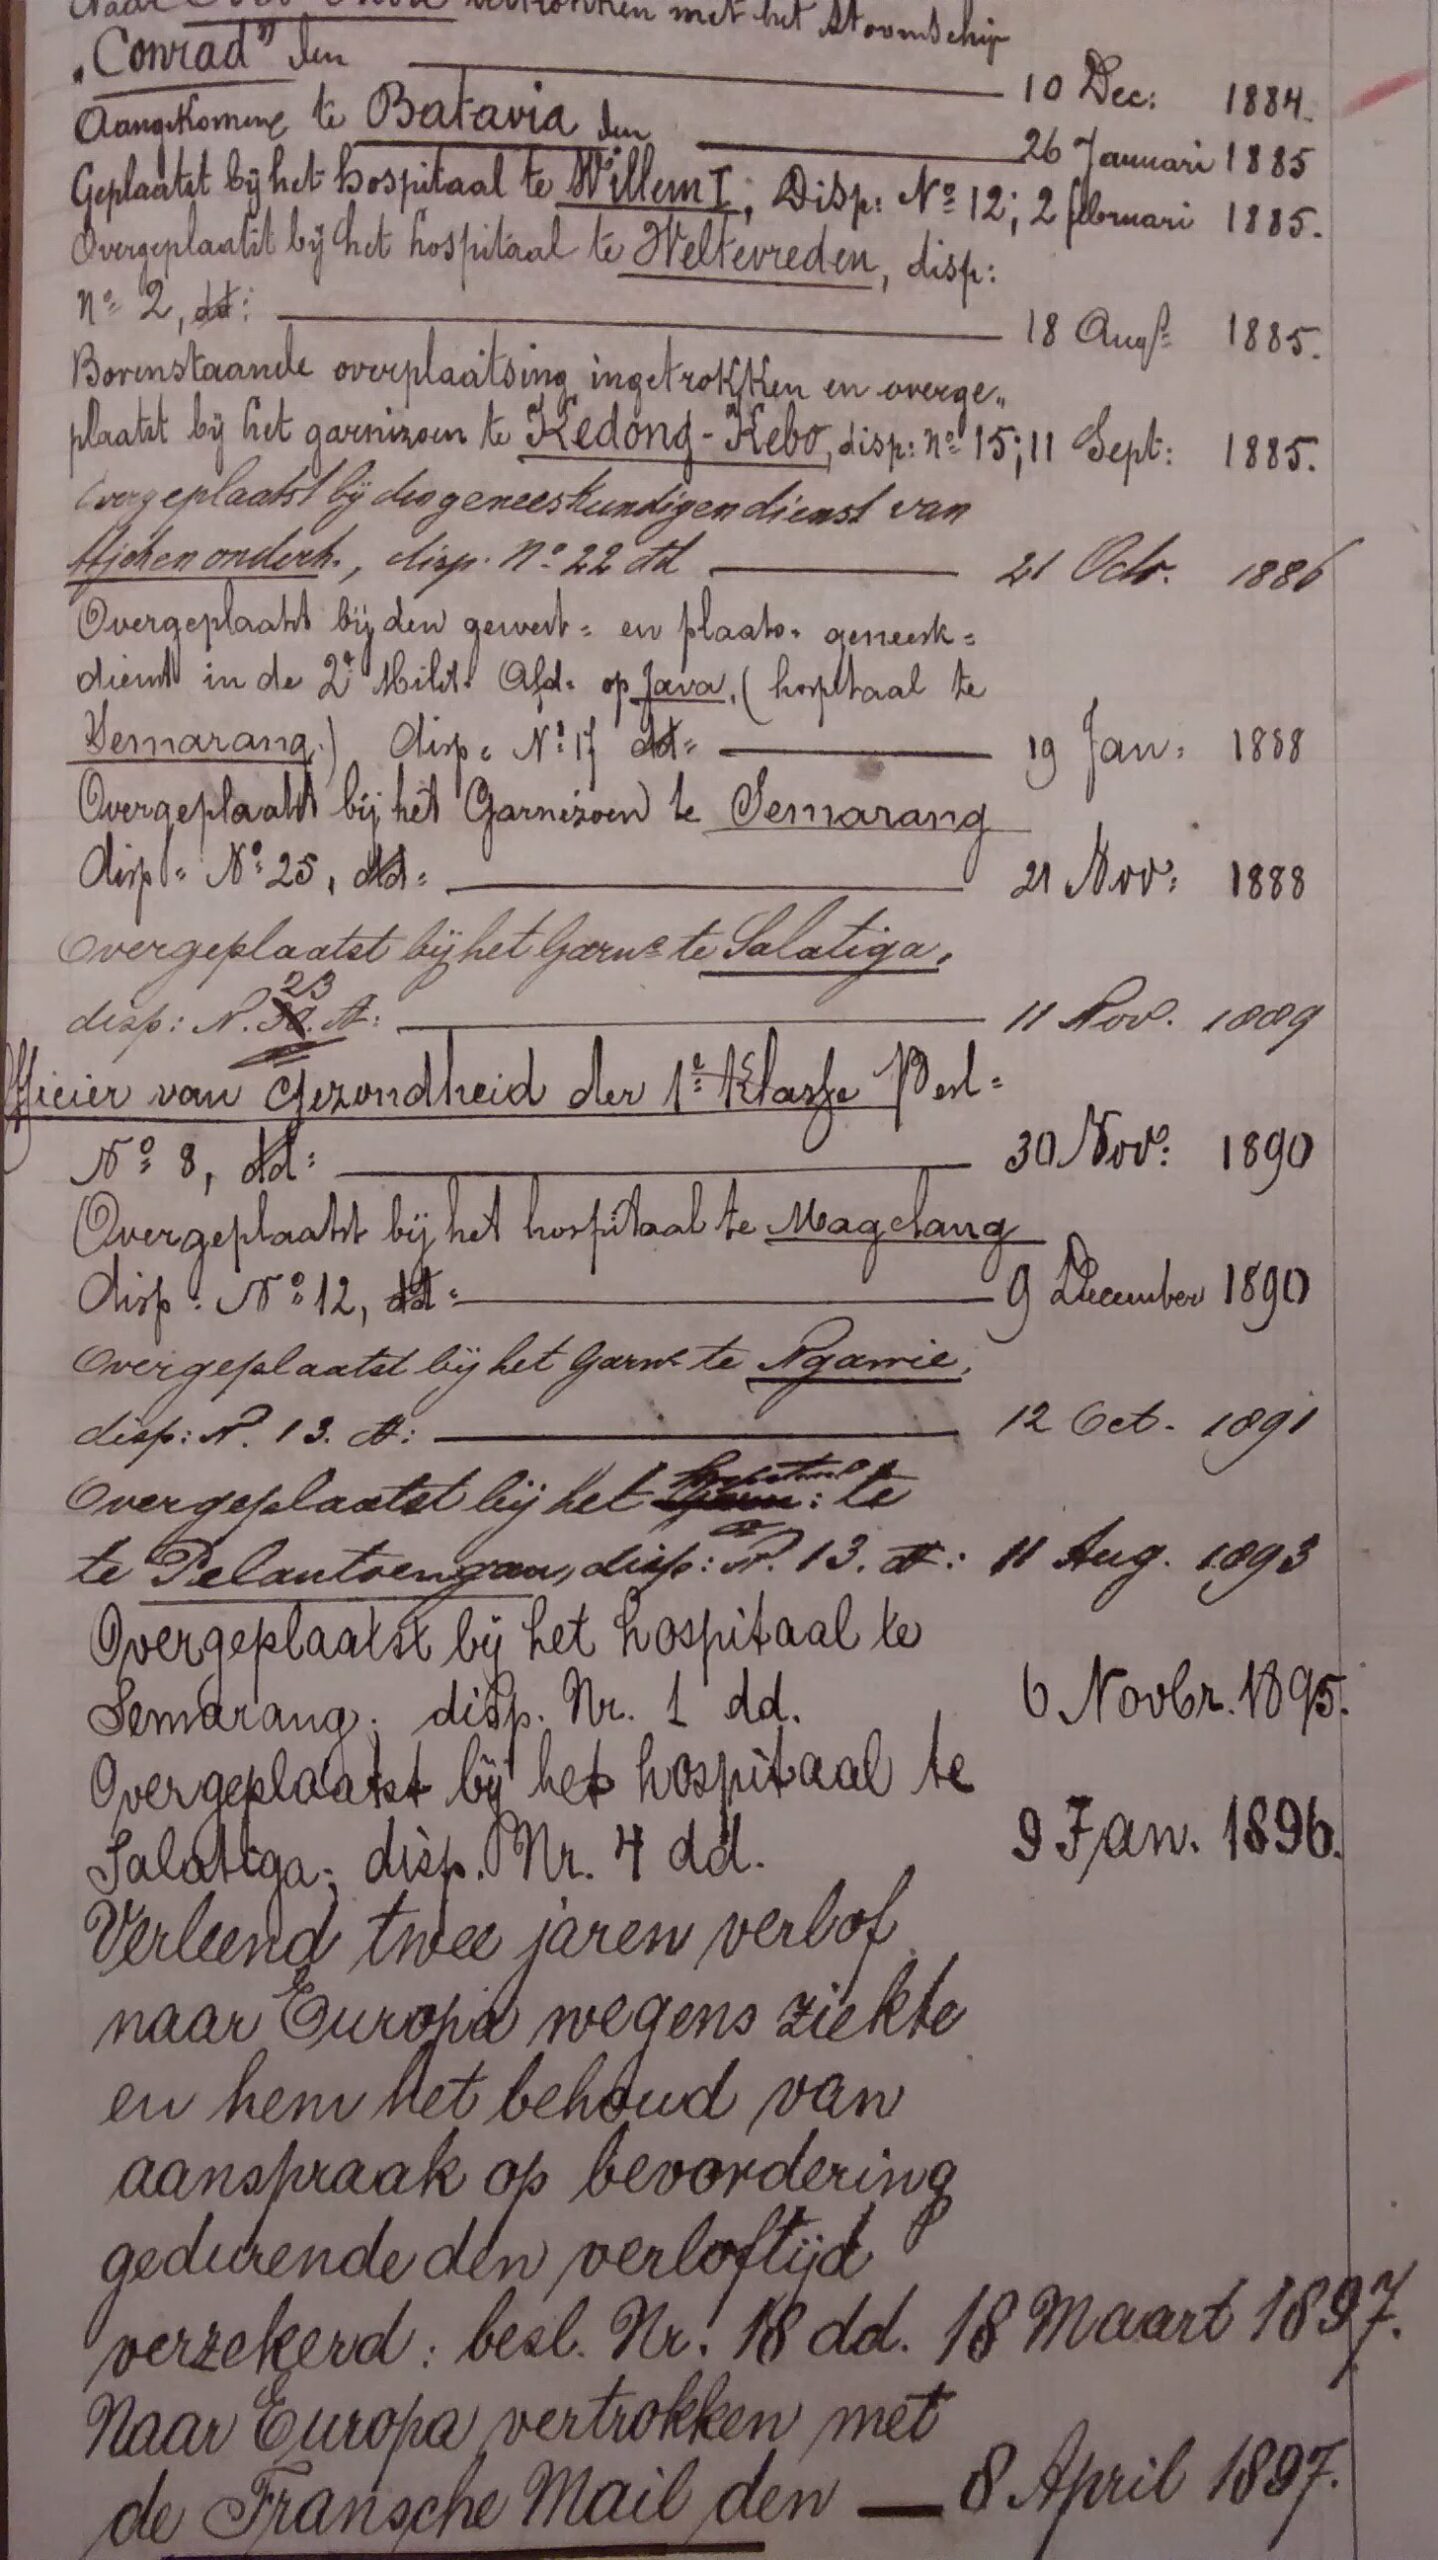 Naar Oost Indië vertrokken met het stoomschip
„Conrad" den 10 Dec: 1884.
Aangekomen te Batavia den 26 Januari 1885
Geplaatst bij het hospitaal te Willem I, Disp: No 12; 2 februari 1885.
Overgeplaatst bij het hospitaal te Weltevreden, disp:
no 2, dd: 18 Augs 1885.
Bovenstaande overplaatsing ingetrokken en overge„
plaatst bij het garnizoen te Kedong-Kebo, disp: no 15; 11 Sept: 1885.
Overgeplaatst bij den geneeskundigen dienst van
Atjeh en onderh., disp. No 22 dd 21 Octr. 1886
Overgeplaatst bij den gewest= en plaats. geneesk=
dienst in de 2e Milit. Afd. op Java, (hospitaal te
Semarang.) disp= No 17 dd= 19 Jan: 1888
Overgeplaatst bij het Garnizoen te Semarang
disp= No 25, dd= 21 Nov: 1888
Overgeplaatst bij het Garn. te Salatiga,
23
disp: N. 30. dd: 11 Nov. 1889
Officier van Gezondheid der 1e Klasse Besl=
No 8, dd: 30 Nov: 1890
Overgeplaatst bij het hospitaal te Magelang
disp: No 12, dd= 9 December 1890
Overgeplaatst bij het Garn. te Ngawie,
disp: N. 13. dd: 12 Oct. 1891
hospitaal
Overgeplaatst bij het Garn: te
te Pelantoengan, disp: N. 13. dd: 11 Aug. 1893
Overgeplaatst bij het hospitaal te
Semarang; disp. Nr. 1 dd. 6 Novbr. 1895.
Overgeplaatst bij het hospitaal te
Salatiga; disp. Nr. 4 dd. 9 Jan. 1896.
Verleend twee jaren verlof
naar Europa wegens ziekte
en hem het behoud van
aanspraak op bevordering
gedurende den verloftijd
verzekerd: besl. Nr. 18 dd. 18 Maart 1897.
Naar Europa vertrokken met
de Fransche Mail den 8 April 1897.